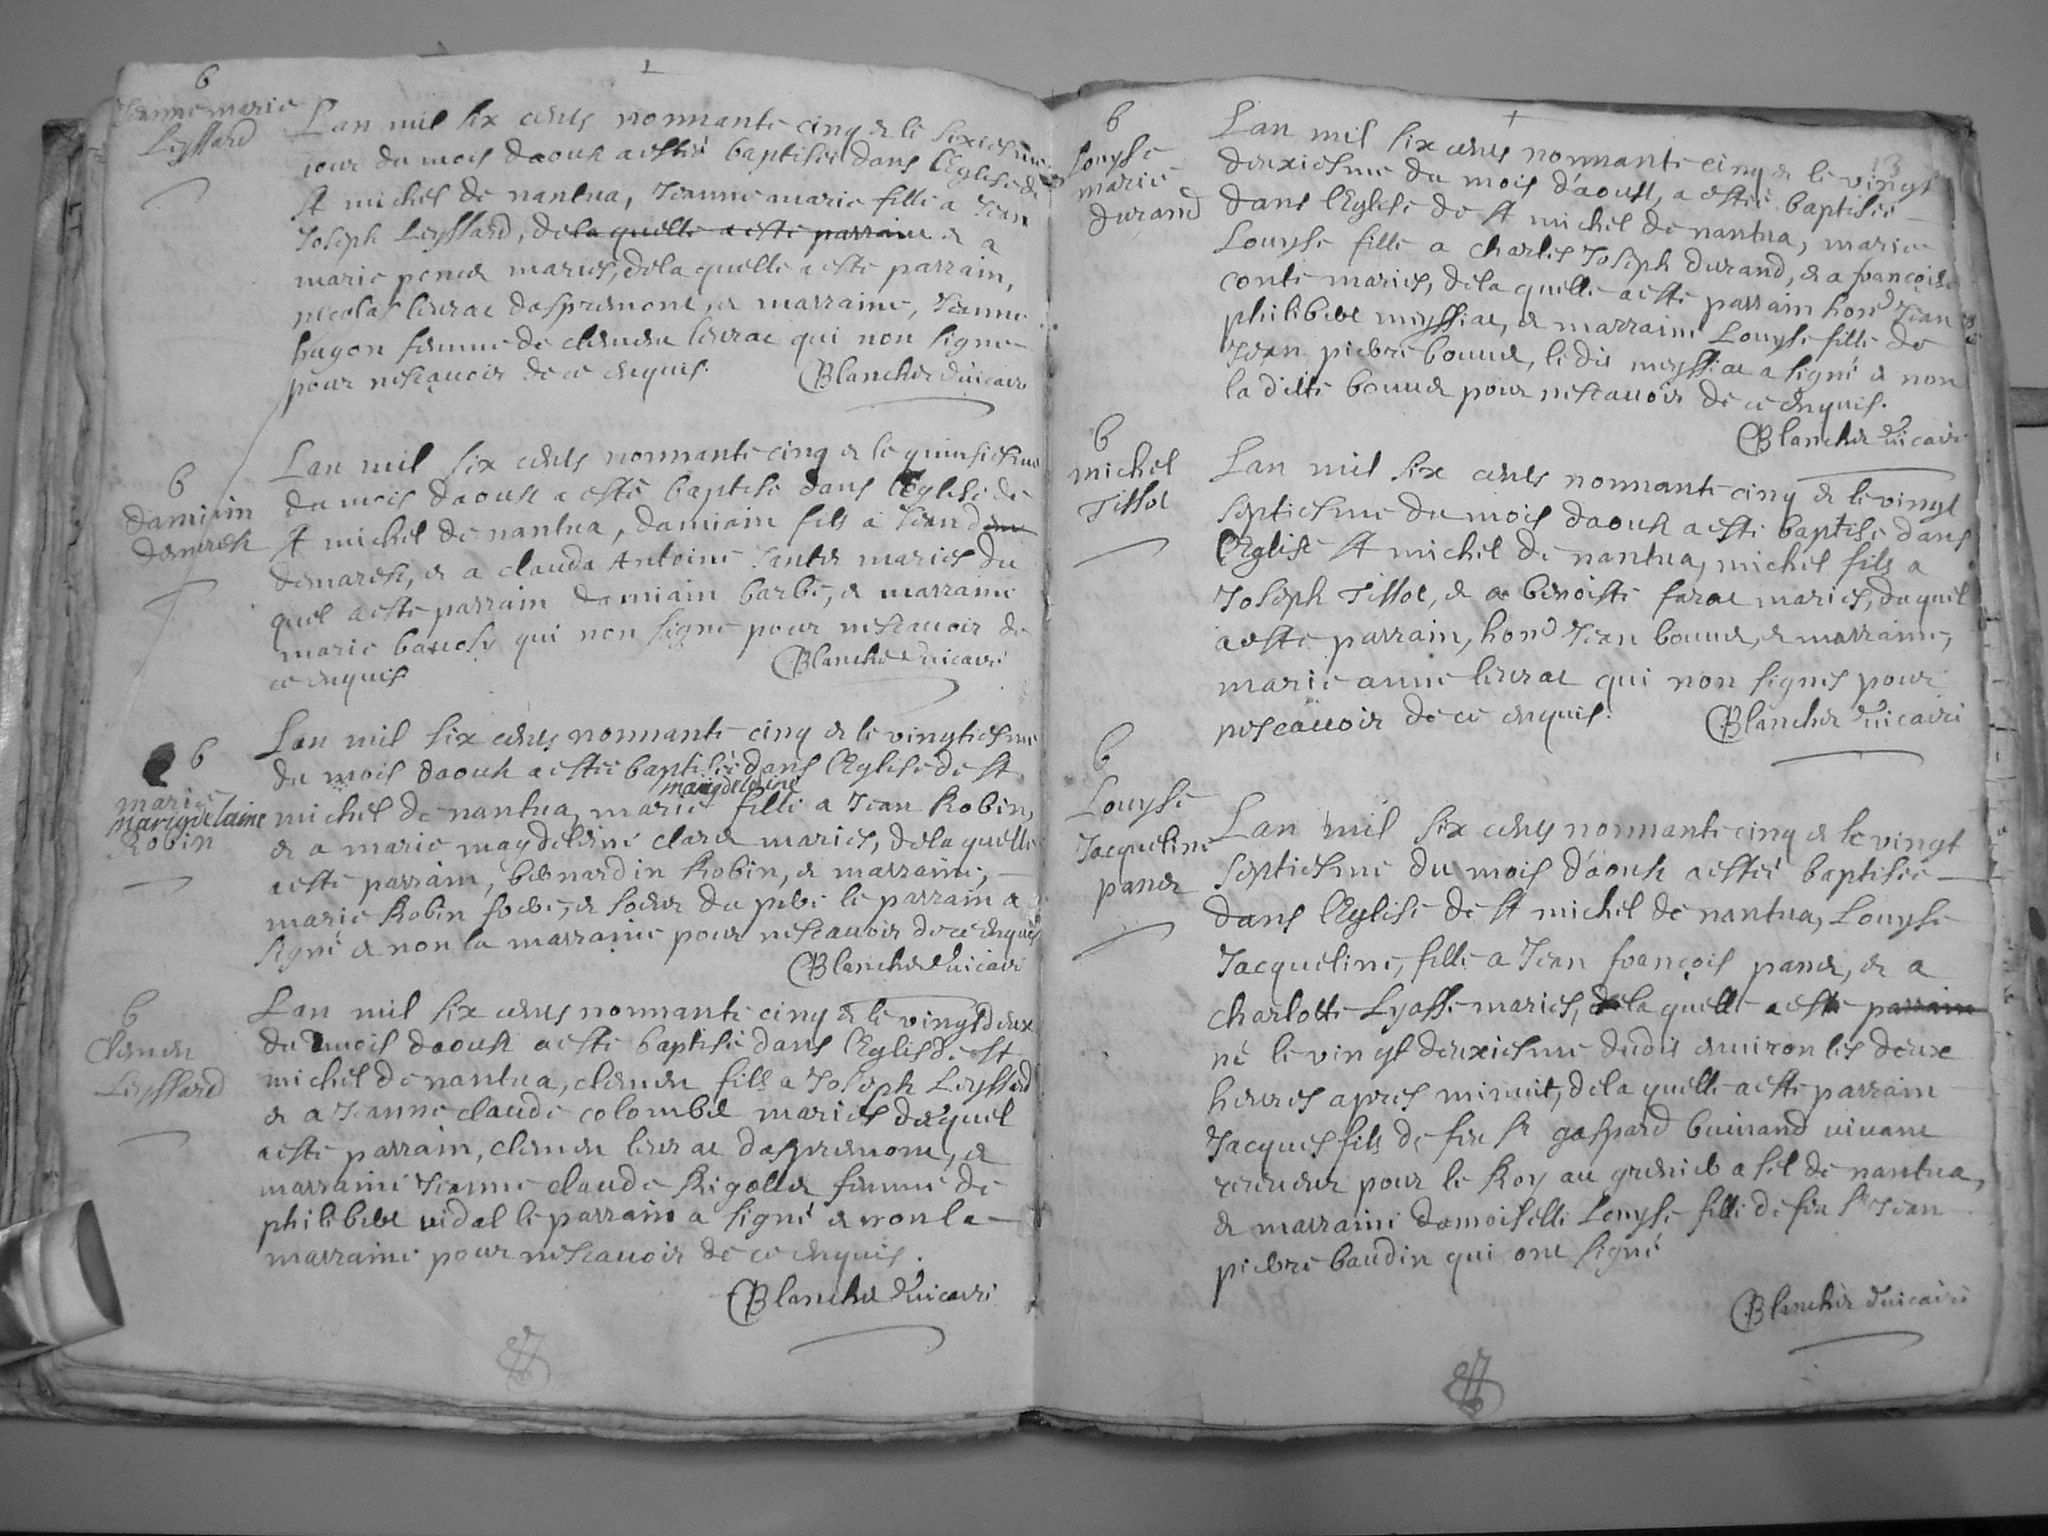 b
Jeanne marie
Leyssard
Lan mil six cents nonnante cinq & le sixiesme
jour du mois daoust a estée baptisée dans leglise de
st michel de nantua, Jeanne marie fille a Jean
Joseph Leyssard, de la quelle a este parrain & a
marie maries, de la quelle a este parrain,
nicolas leurat daspremont, & marraine, Jeanne
hugon femme de clement leurat qui non signe
pour nescauoir de ce enquis. Blanchet vicaire
b
damiain
demarest
Lan mil six cents nonnante cinq & le quinsiesme
du mois daoust a esté baptisé dans leglise de
st michel de nantua, damiain fils a Jean
demarest, & a clauda Antoine maries du
quel a este parrain damiain barbe, & marraine
marie qui non signe pour nescauoir de
ce enquis Blanchet vicaire
b
marie
marigdelaine
Robin
Lan mil six cents nonnante cinq & le vingtiesme
du mois daoust a estée baptisée dans leglise de st
magdeleine
michel de nantua, marie fille a Jean Robin,
& a marie magdeleine maries, de la quelle
a este parrain, bernardin Robin, & marraine,
marie Robin frere, & soeur du pere le parrain a
signé & non la marraine pour nescauoir de ce enquis
Blanchet vicaire
b
Clement
Leyssard
Lan mil six cents nonnante cinq & le vingt deux
du mois daoust a esté baptisé dans leglise de st
michel de nantua, clement fils a Joseph Leyssard
& a Jeanne claude colombet maries duquel
a este parrain, clement leurat daspremont, &
marraine Jeanne claude Rigollet femme de
philibert vidal le parrain a signé & non la
marraine pour nescauoir de ce enquis.
Blanchet vicaire
13
b
Louyse
marie
durand
Lan mil six cents nonnante cinq & le vingt
deuxiesme du mois d'aoust, a estée baptisée
dans leglise de st michel de nantua, marie
Louyse fille a charles Joseph durand, & a francoise
conte maries, de la quelle a este parrain hond Jean
philibert meyssiat, & marraine Louyse fille de
Jean pierre bouuet, le dit meyssiat a signé & non
la dicte bouuet pour nescauoir de ce enquis.
Blanchet vicaire
b
michel
Tissot
Lan mil six cents nonnante cinq & le vingt
septiesme du mois daoust a esté baptisé dans
leglise st michel de nantua, michel fils a
Joseph Tissot, & a benoiste maries, duquel
a este parrain, hond Jean bouuet, & marraine,
marie anne leurat qui non signes pour
nescauoir de ce enquis. Blanchet vicaire
b
Louyse
Jacqueline
panet
Lan mil six cents nonnante cinq & le vingt
septiesme du mois d'aoust a estée baptisée
dans leglise de st michel de nantua, Louyse
Jacqueline, fille a Jean françois panet, & a
charlotte Lyasse maries, de la quelle a este parrain
né le vingt deuxiesme dudit enuiron les deux
heures apres minuit, de la quelle a este parrain
Jacques fils de feu sr gaspard buinand viuant
receueur pour le Roy au grenier a sel de nantua,
& marraine damoiselle Louyse fille de feu sr Jean
pierre baudin qui ont signé
Blanchet vicaire